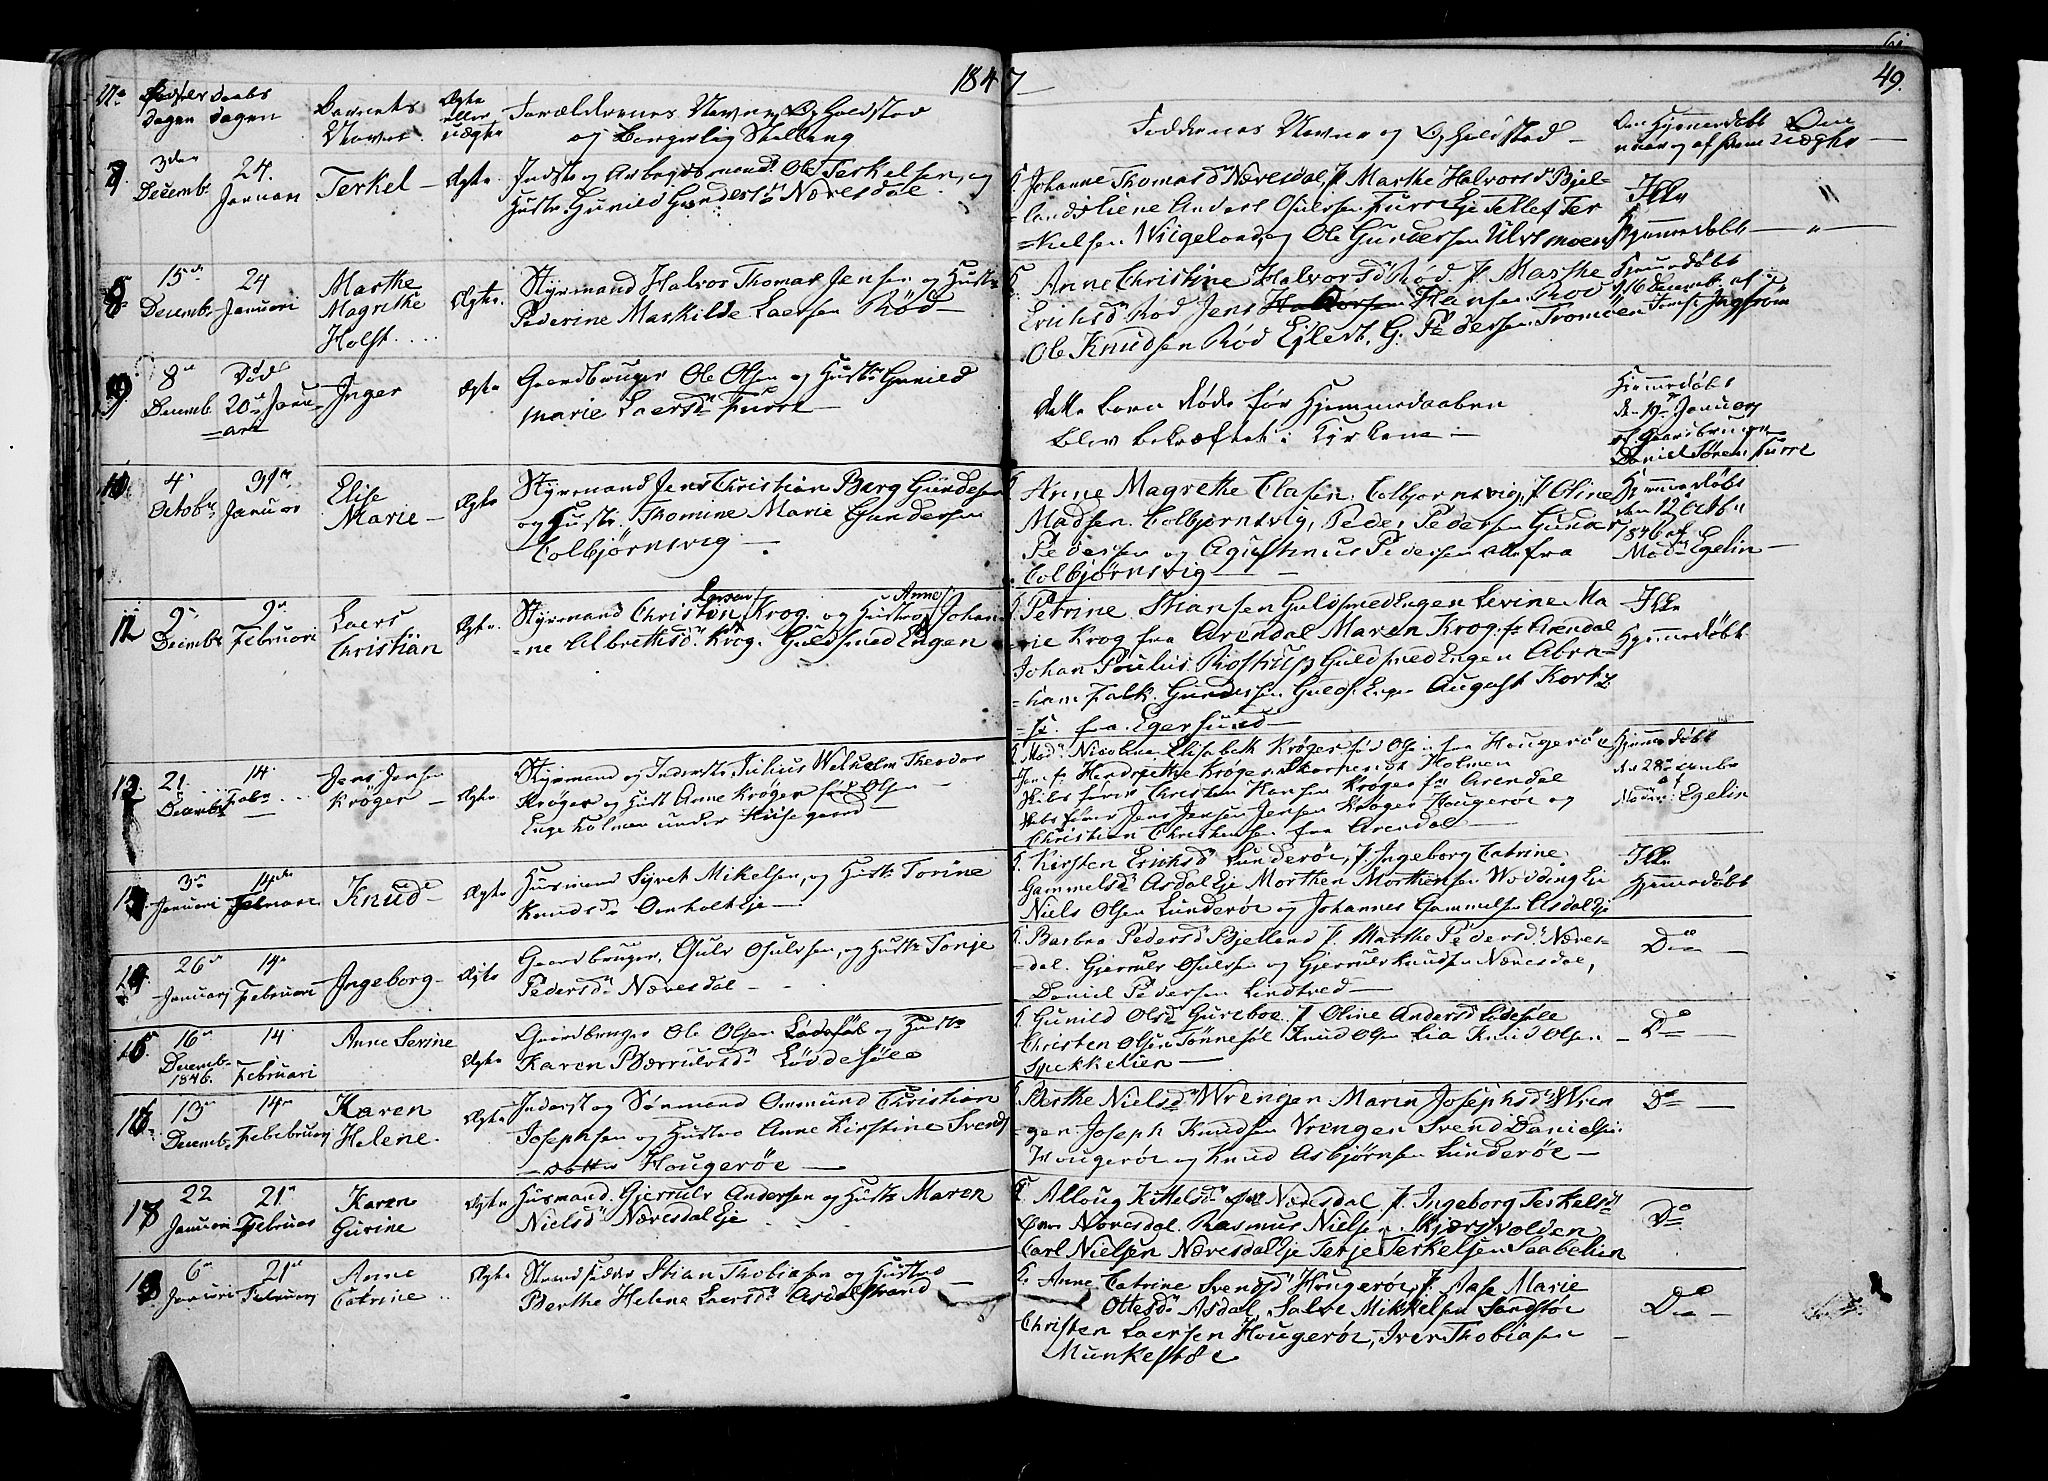 1847
49.
No Fødsels dagen
Daabs dagen
Barnets Navne
Ægte eller uægte
Forældrenes Navne, Opholdsted
og Borgerlig Stilling
Faddernes Navne og Opholdsted
Om Hjemmedøbt
naar og af hvem
Om Uægte
7. 3die Decemb. 24. Januari Terkel Ægte. Inderst og Arbejdsmand Ole Terkelsen, og
Hustr. Gunild Gundersd. Næresdal.
Johanne Thomasd. Næresdal, J. Marthe Halvorsd. Bjel-
=land Anders Osulfsen Furre Eje Tellef Ter
=kelsen Wiigeland, Ole Gundersen Ulvsmoen
Ikke
Hjemmedøbt
8 15de Decemb. 24 Januari Marthe
Magrethe
Holst
Ægte. Styrmand Halvor Thomas Jensen og Hustr.
Pederine Maskilde Laersen Rød
Anne Christine Halvorsd. Rød J. Marthe
Eriksd. Rød Jens Hansen Rød
Ole Knudsen Rød Ejlert. G. Pedersen Tromøen
Hjemmedøbt
d. 16 Decemb. af
9 8de Decemb. Død
20de Janu-
=are
Inger Ægte Gaardbruger Ole Olsen og Hustr. Gunild
Marie Laersd. Furre
dette Barn døde før Hjemmedaaben
blev bekræftet i Kirken
Hjemmedøbt
den 19de January
af Gaardbruger
Daniel Sørens. Furre
10 4. Octob. 31te Januar Elise
Marie
Ægte Styrmand Jens Christian Berg Gundersen
og Hustr. Thomine Marie Gundersen
Colbjørnsvig
Anne Magrethe Clasen. Colbjørnsvig, J. Oline
Madsen. Colbjørnsvig, Peder Pedersen Gunder
Pedersen og Agustinus Pedersen alle fra
Colbjørnsvig
Hjemmedøbt
den 12 Octb.
1846 af
Mad. Egelin
11 9. Decemb. 9de Februari Laers
Christian
Ægte. Styrmand Christen Larsen Krog og Hustro Anne Johan-
=ne Albrethsd. Krog. Guldsmed Engen
Petrine Stiansen Guldsmed Engen Levine Ma
=rie Krog fra Arendal Maren Krog. fr Arendal
Johan Poulus Rostrup Guldsmed Engen Abra-
=ham Falk Gundersen Guldsm. Engen August Kort
fra Egersund
Ikke
Hjemmedøbt
12 21 Decemb. 14 Febr. Jens Jensen
Krøger
Ægte Styrmand og Inderste Julius Wilhelm Theodor
Krøger og Hust Anne Krøger fød Olsen
Enge Holmen under Hiisegaard
Mad. Nicoline Elisebeth Krøger fød Olsen fra Hougerøe
Jom fr. Hendrikke Krøger Skorpen Holmen
Skibsfører Christen Hansen Krøger fra Arendal
Skibsfører Jens Jensen Krøger Hougerøe og
Christian Christensen fra Arendal
Hjemmedøbt
den 28de Decemb.
af
Madam Egelin
13 3de Januari 14de Februari Knud Ægte Husmand Syvert Mikelsen, og Hustr. Torine
Knudsd. Omholt Eje
Kirsten Eriksd. Lunderøe, J. Ingeborg Catrine
Gammelsd. Asdal Eje Morthen Morthensen Wodding Eje
Niels Olsen Lunderøe og Johannes Gammelsen Asdal Eje
Ikke
Hjemmedøbt
14 26de January 14de Februari Ingeborg Ægte Gaardbruger, Osulv Osulvsen, og Hustr. Tonje
Pedersd. Næresdal
Barbra Pedersd. Bjelland J. Marthe Pedersd. Næres-
=dal. Gjerrulv Osulvsen og Gjerrulv Knudsen Næresdal,
Daniel Pedersen Lindtved
Do
15 16de Decemb. 1846. 14 Februari Anne Serine Ægte Gaardbruger Ole Olsen Lødesøl og Hustr.
Karen Bærrulvsd. Løddesøel
Gunild Olsd. Gureboe J. Oline Andersd. Lødesøle
Christen Olsen Tønnesøl Knud Olsen Lia Knud Olsen
Spekkelien
Do
16 13de Decemb. 14de Febebruary Karen
Helene.
Ægte Inderst og Sømand Ommund Christian
Josephsen og Hustro Anne Kirstine Svends
datter Hougerøe
Berthe Nielsd. Wrengen Maren Josephsd. Wren
gen Joseph Knudsen Vrengen Svend Danielsen
Hougerøe og Knud Asbjørnsen Lunderøe
Do
17 22 Januari 21de Februar Karen
Gurine
Ægte Husmand. Gjerrulv Andersen og Hustr Maren
Nielsd. Næresdal Eje
Alloug Kittelsd. Næresdal. J. Ingeborg Terkelsd.
Næresdal. Rasmus Nielsen Kjærsvolden
Carl Nielsen Næresdal Eje Terje Terkelsen Saabelien
Do
18 6te Januari 21de February Anne
Catrine
Ægte Strandsidder Stian Thobiasen og Hustro
Berthe Helene Laersd. Asdalstrand
Anne Catrine Svendsd. Hougerøe J. Aase Marie
Ottesd. Asdal, Salve Mikkelsen Sandstøe
Christen Laersen Hougerøe, Iver Thobiasen
Munkestøe
Do